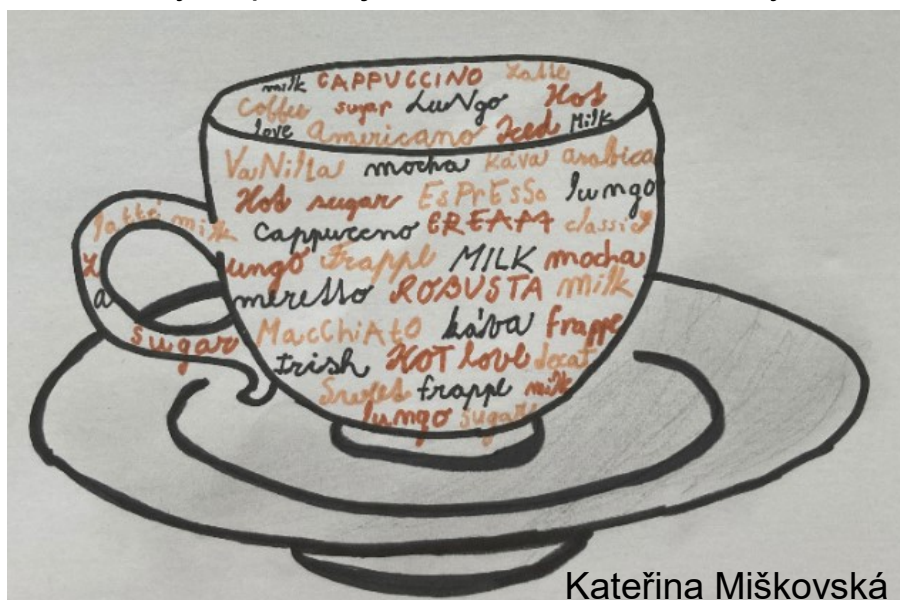 milk CAPPUCCINO Latte
Coffee sugar LuNgo Hot
love Americano Iced Milk
VaNilla mocha káva arabica
Hot sugar EsPrEsSo lungo
latté milk Cappucceno CREAM classic
ungo Frappe MILK mocha
meretto ROBUSTA milk
MacChiAtO káva frappe
sugar Irish HOT love decaf
Sweet frappe milk
lungo sugar
Kateřina Miškovská